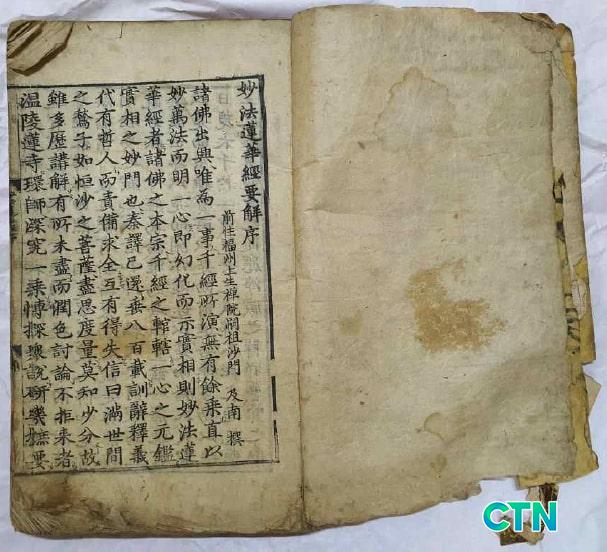 妙法蓮華經要解序
前住福州上生禅院嗣祖沙門 及南 撰
諸佛出興唯為一事千經所演無有餘乗直以
妙萬法而明一心即幻化而示實相則妙法蓮
華經者諸佛之本宗千經之輨轄一心之元鑑
實相之妙門也秦譯已還垂八百載訓辭釋義
代有哲人而責備求全互有得失信曰滿世間
之鶖子如恒沙之菩薩盡思度量莫知少分故
雖多歷講解有所未盡而潤色討論不拒来者
温陵蓮寺環師深究一乗愽探衆說研幾摭要
CTN